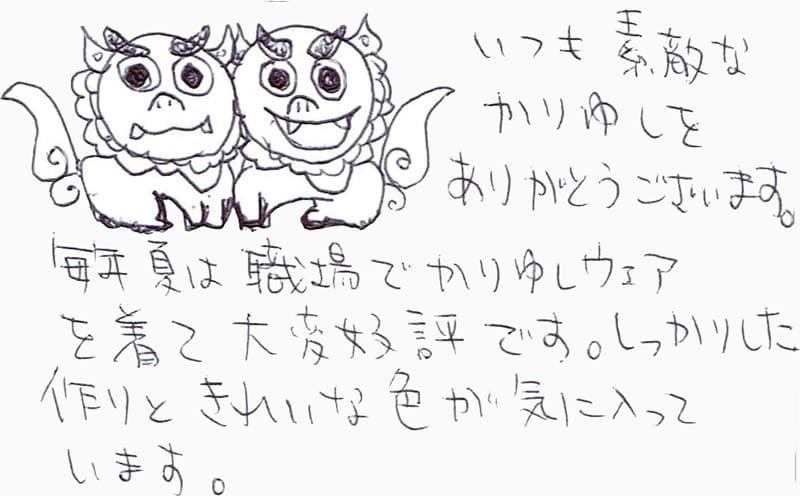 いつも素敵な
かりゆしを
ありがとうございます。
毎年夏は職場でかりゆしウェア
を着て大変好評です。しっかりした
作りときれいな色が気に入って
います。